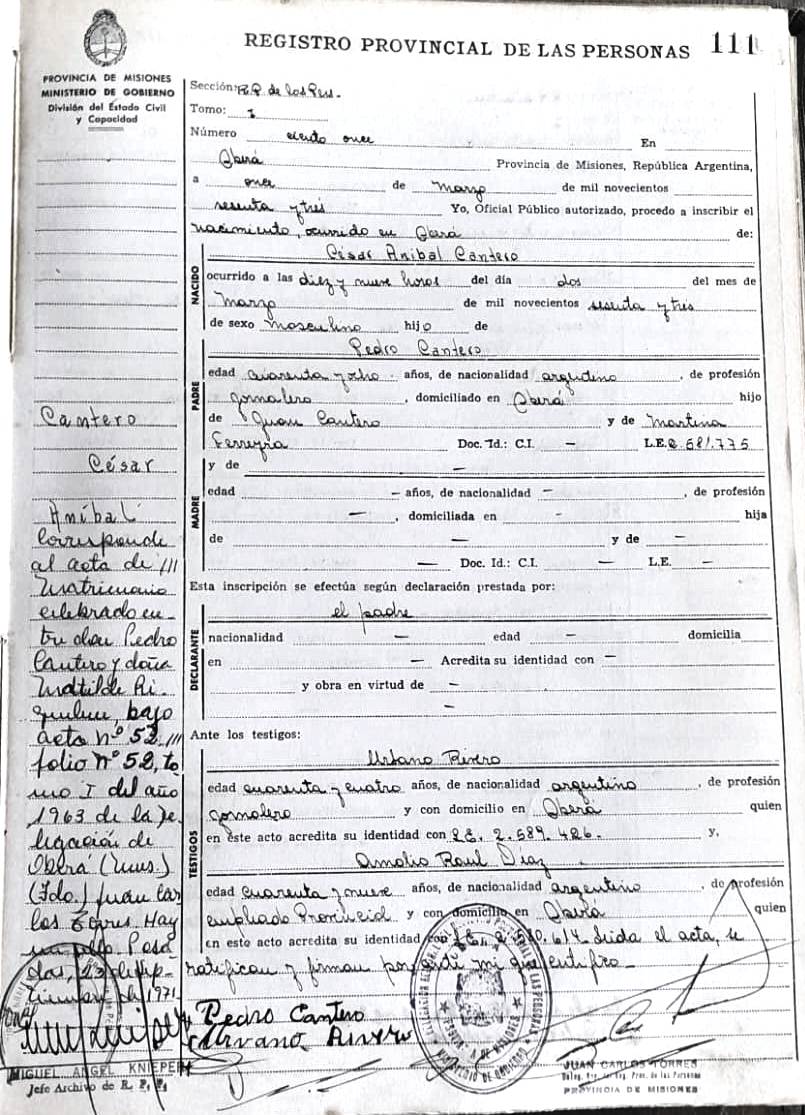 REGISTRO PROVINCIAL DE LAS PERSONAS 111
PROVINCIA DE MISIONES
MINISTERIO DE GOBIERNO
División del Estado Civil
y Capacidad
Cantero
César
Aníbal
Corresponde
al acta de ///
Matrimonio
celebrado en
tre don Pedro
Cantero y doña
Matilde Ri
bajo
acta nº 52 ///
folio nº 52, to
mo I del año
1963 de la De
legación de
Oberá (Mnes.)
(Fdo.) Juan Car
los Torres Hay
un sello Posa
das, 23 de Sep
tiembre de 1971
MIGUEL ANGEL KNIEPER
Jefe Archivo de R. P. P.
Sección: R.P. de las Pers.
Tomo: I
Número ciento once En
Oberá Provincia de Misiones, República Argentina,
a once de Marzo de mil novecientos
sesenta y tres Yo, Oficial Público autorizado, procedo a inscribir el
nacimiento, ocurrido en Oberá de:
NACIDO
César Anibal Cantero
ocurrido a las diez y nueve horas del día dos del mes de
Marzo de mil novecientos sesenta y tres
de sexo masculino hijo de
PADRE
Pedro Cantero
edad cuarenta y ocho años, de nacionalidad argentino, de profesión
jornalero, domiciliado en Oberá hijo
de Juan Cantero y de Martina
Ferreyra Doc. Id.: C.I. — L.E. 2.581.775
MADRE
y de —
edad — años, de nacionalidad —, de profesión
—, domiciliada en - hija
de — y de —
— Doc. Id.: C.I. — L.E. —
Esta inscripción se efectúa según declaración prestada por:
DECLARANTE
el padre
nacionalidad — edad — domicilia
en — Acredita su identidad con —
y obra en virtud de —
—
Ante los testigos:
TESTIGOS
Urbano Rivero
edad cuarenta y cuatro años, de nacionalidad argentino, de profesión
jornalero y con domicilio en Oberá quien
en este acto acredita su identidad con L.E. 2.589.426. y,
Amalio Raul Díaz
edad cuarenta y nueve años, de nacionalidad argentino, de profesión
empleado Provincial y con domicilio en Oberá quien
en este acto acredita su identidad con Leida el acta, se
ratifican y firman por ante mi que certifico —
Pedro Cantero
Urvano Rivero
JUAN CARLOS TORRES
PROVINCIA DE MISIONES